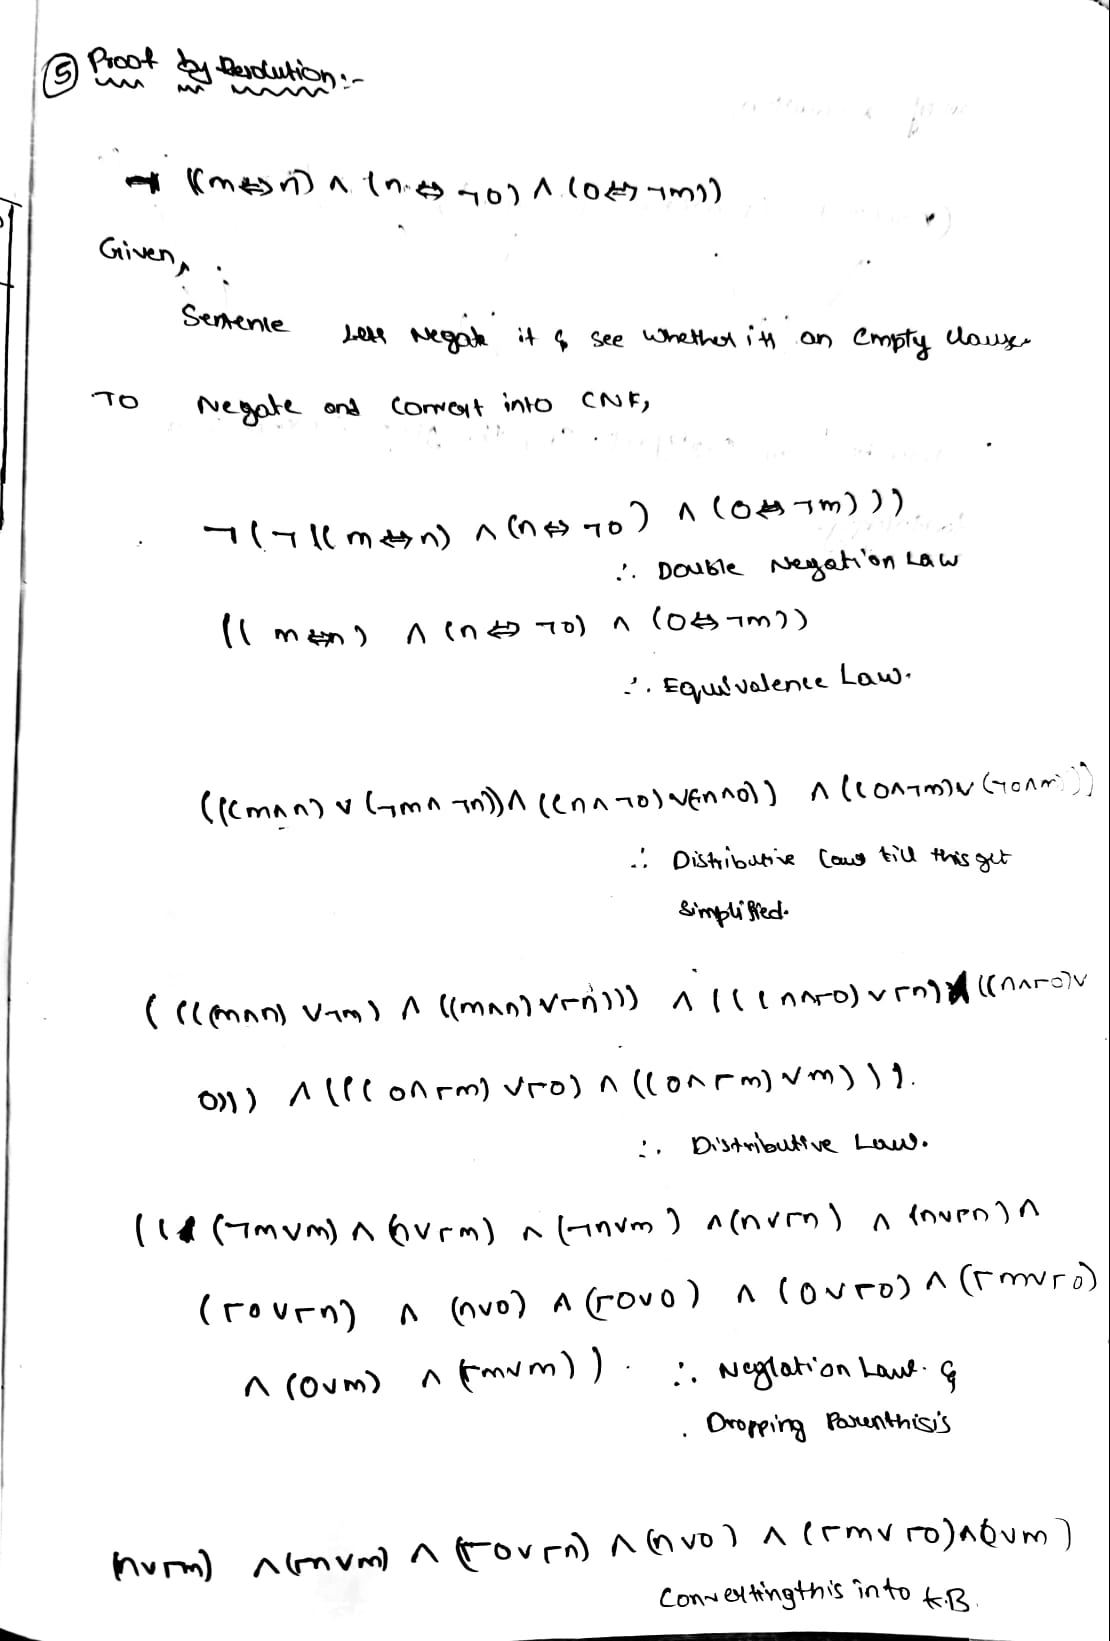 ⑤ Proof by Resolution:-
¬ ((m⇔n) ∧ (n⇔¬o) ∧ (o⇔¬m))
Given,
Sentence Lets Negate it & see whether its an Empty clause
To Negate and convert into CNF,
¬(¬((m⇔n) ∧ (n⇔¬o) ∧ (o⇔¬m)))
∴ Double Negation Law
((m⇔n) ∧ (n⇔¬o) ∧ (o⇔¬m))
∴ Equivalence Law.
(((m∧n) ∨ (¬m∧¬n)) ∧ ((n∧¬o)∨(¬n∧o)) ∧ ((o∧¬m)∨(¬o∧m)))
∴ Distributive Law till this get
simplified.
((((m∧n) ∨¬m) ∧ ((m∧n)∨¬n))) ∧ (((n∧¬o)∨¬n) ∧ ((n∧¬o)∨
o))) ∧ (((o∧¬m) ∨¬o) ∧ ((o∧¬m)∨m))).
∴ Distributive Law.
(((¬m∨m) ∧ (n∨¬m) ∧ (¬n∨m) ∧(n∨¬n) ∧ (n∨¬n)∧
(¬o∨¬n) ∧ (n∨o) ∧ (¬o∨o) ∧ (o∨¬o) ∧ (¬m∨¬o)
∧ (o∨m) ∧ (¬m∨m)). ∴ Neglation Law. &
. Dropping Parenthisis
(n∨¬m) ∧(¬n∨m) ∧ (¬o∨¬n) ∧ (n∨o) ∧ (¬m∨¬o)∧(o∨m)
Converting this into K.B.